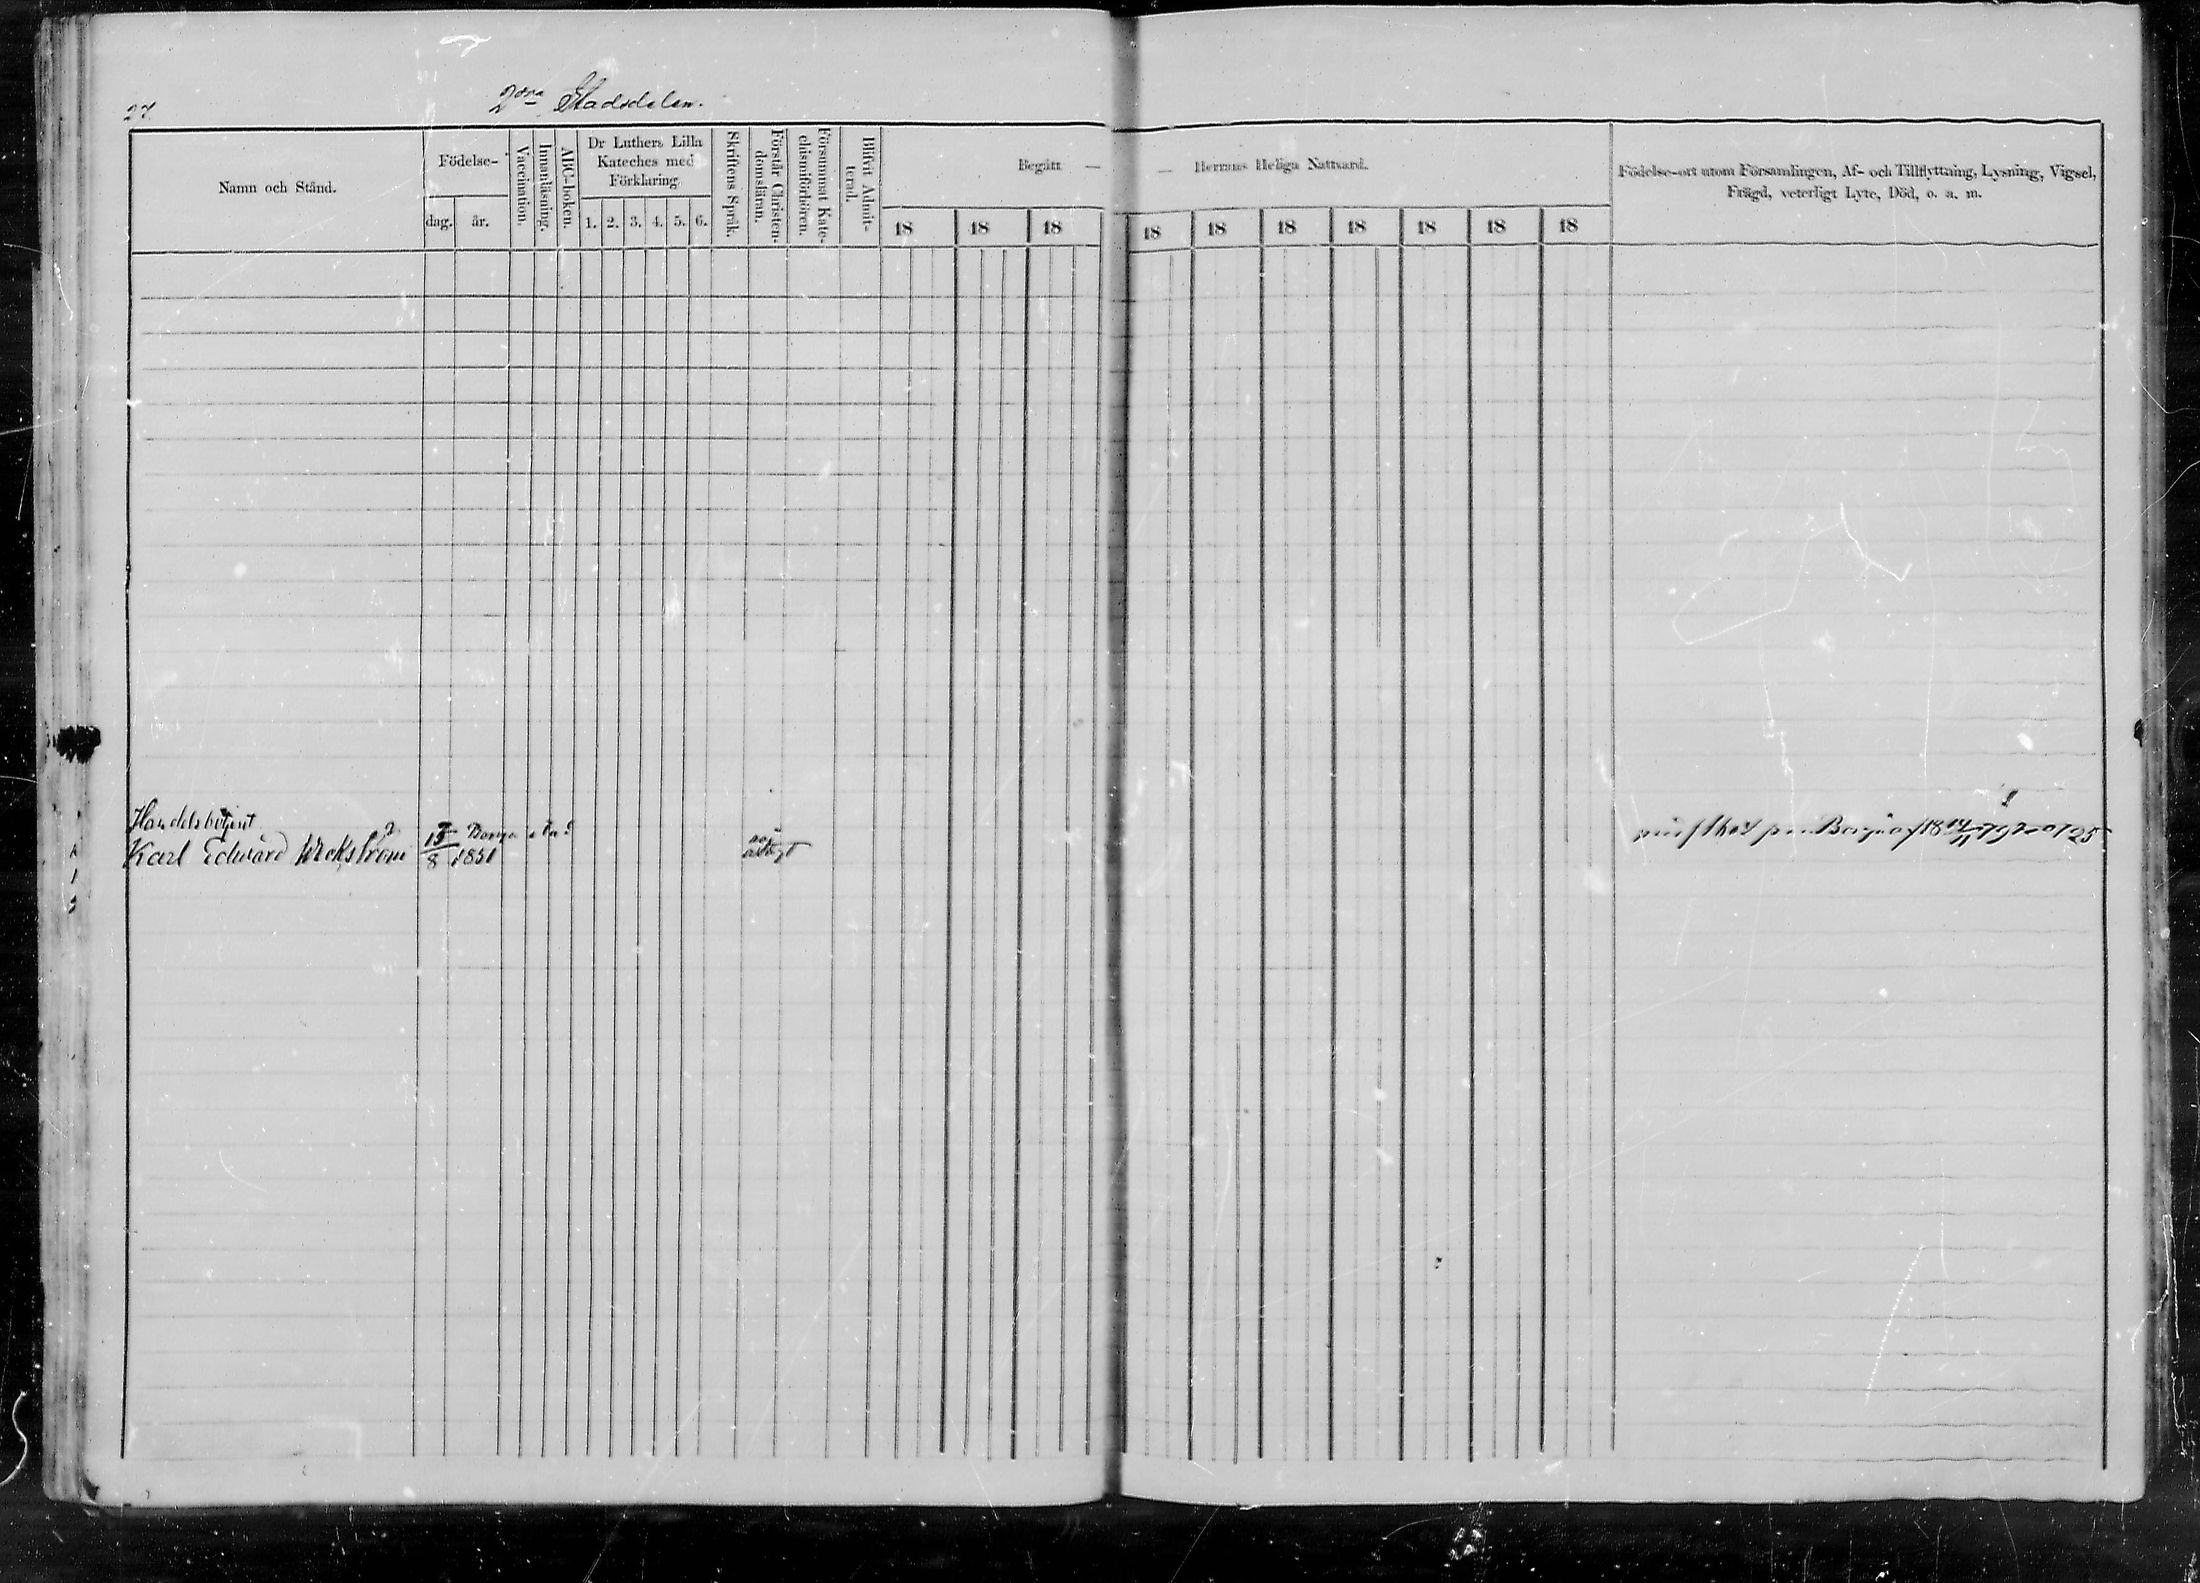 27.
2dra Stadsdelen.
Namn och Stånd.
Födelse-
dag.
år.
Vaccination.
Innanläsning.
ABC-boken.
Dr Luthers Lilla
Kateches med
Förklaring.
1. 2. 3. 4. 5. 6.
Skriftens Språk.
Förstår Christen-
domsläran.
Försummat Kate-
chismiförhören.
Blifvit Admit-
terad.
Begått —
— Herrans Heliga Nattvard.
18 18 18 18 18 18 18 18 18 18
Födelse-ort utom Församlingen, Af- och Tillflyttning, Lysning, Vigsel,
Frägd, veterligt Lyte, Död, o. a. m.
Handelsbetjent
Karl Edvard Weckström
15/8 1851
Borgå
Borgå